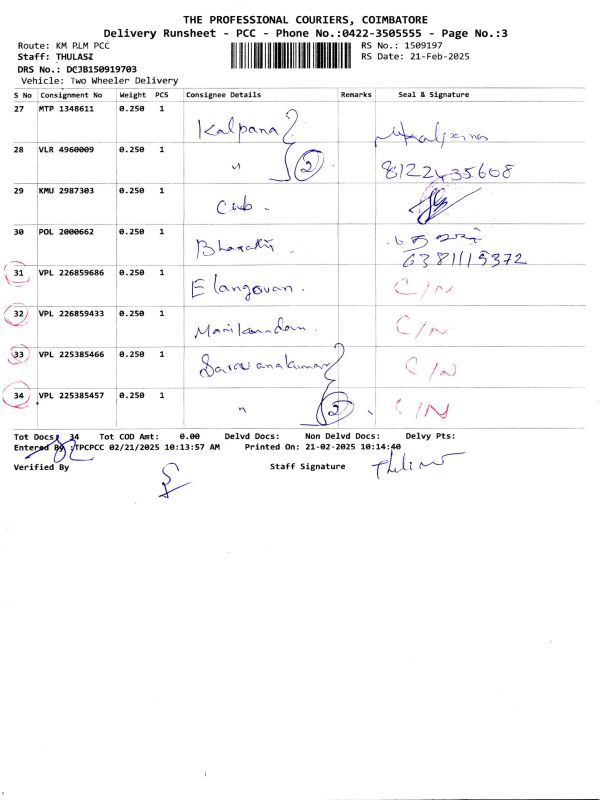 THE PROFESSIONAL COURIERS, COIMBATORE
Delivery Runsheet - PCC - Phone No.:0422-3505555 - Page No.:3
Route: KM P.LM PCC
RS No.: 1509197
Staff: THULASI
RS Date: 21-Feb-2025
DRS No.: DCJB150919703
Vehicle: Two Wheeler Delivery
S No Consignment No Weight PCS Consignee Details Remarks Seal & Signature
27 MTP 1348611 0.250 1
Kalpana
28 VLR 4960009 0.250 1
" 2 8122435608
29 KMU 2987303 0.250 1
Cub.
30 POL 2000662 0.250 1
Bharathi
6381115372
31 VPL 226859686 0.250 1
Elangovan. C/N
32 VPL 226859433 0.250 1
Manikandan. C/N
33 VPL 225385466 0.250 1
Saravanakumar C/N
34 VPL 225385457 0.250 1
" 2 C/N
Tot Docs: 34 Tot COD Amt: 0.00 Delvd Docs: Non Delvd Docs: Delvy Pts:
Entered By :TPCPCC 02/21/2025 10:13:57 AM Printed On: 21-02-2025 10:14:40
Verified By Staff Signature